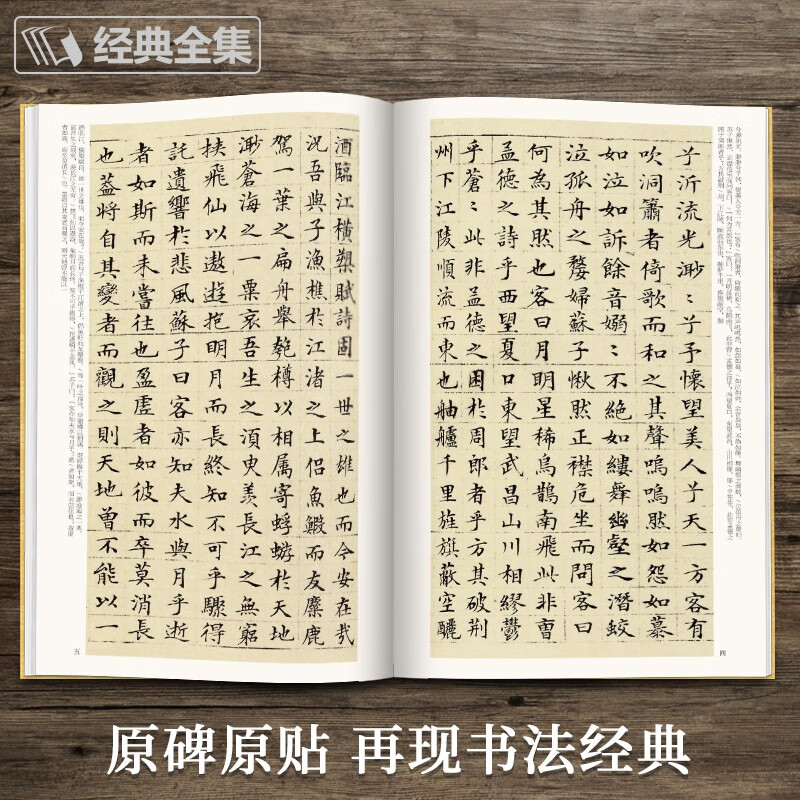 经典全集
兮泝流光渺〻兮予懷望美人兮天一方客有
吹洞簫者倚歌而和之其聲嗚嗚然如怨如慕
如泣如訴餘音嫋〻不絕如縷舞幽壑之潛蛟
泣孤舟之嫠婦蘇子愀然正襟危坐而問客曰
何為其然也客曰月明星稀烏鵲南飛此非曹
孟德之詩乎西望夏口東望武昌山川相繆鬱
乎蒼〻此非孟德之困於周郎者乎方其破荊
州下江陵順流而東也舳艫千里旌旗蔽空釃
四
酒臨江橫槊賦詩固一世之雄也而今安在哉
況吾與子漁樵於江渚之上侶魚鰕而友麋鹿
駕一葉之扁舟舉匏樽以相属寄蜉蝣於天地
渺蒼海之一粟哀吾生之須臾羨長江之無窮
挾飛仙以遨遊抱明月而長終知不可乎驟得
託遺響於悲風蘇子曰客亦知夫水與月乎逝
者如斯而未嘗往也盈虛者如彼而卒莫消長
也蓋將自其變者而觀之則天地曾不能以一
五
原碑原贴 再现书法经典